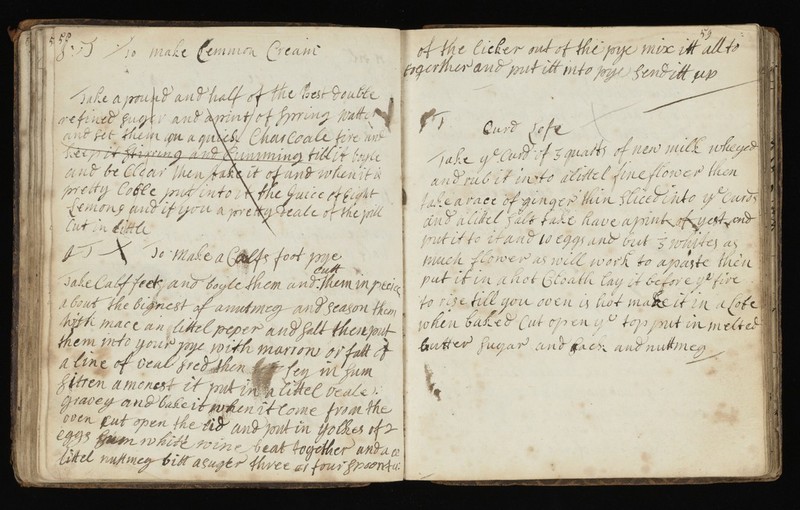 58
To make Lemmon Cream
Take a pound and half of the Best double
refined suger and a print of spring watter
and set them on a quick Charcoale fire and
keep it stirring and scumming till it boyle
and be Clear then take it of and when it is
pretty Coole put into it the Juice of Eight
Lemons and if you a pretty deale of the pill
Cut in little
To make a Calfs foot pye
Take Calf feet and boyle them and cutt them in peices
about the bignest of a nutmeg and season them
with mace an littel peper and salt then put
them into your pye with marrow or fatt of
a line of veal sred then ley in sum
sitren amonest it put in a littel veale
gravey and bake it when it come from the
oven cut open the lid and put in yolkes of 2
eggs sum whitt wine beat together and a
littel nuttmeg bitt a suger three or four spoonfuls
59
of the licker out of the pye mix itt all to
together and put itt into pye send itt up
Curd Lofe
Take ye Curd of 3 quarts of new milk wheyed
and rub it into a littel fine flower then
take a race of ginger thin sliced into ye Curds
and a littel salt take have a print of yest and
put it to it and 10 eggs and but 3 whites as
much flower as will work to a paste then
put it in a hot Cloath lay it before ye fire
to rise till you oven is hot make it in a Lofe
when baked Cut open ye top put in melted
butter sugar and sack and nuttmeg